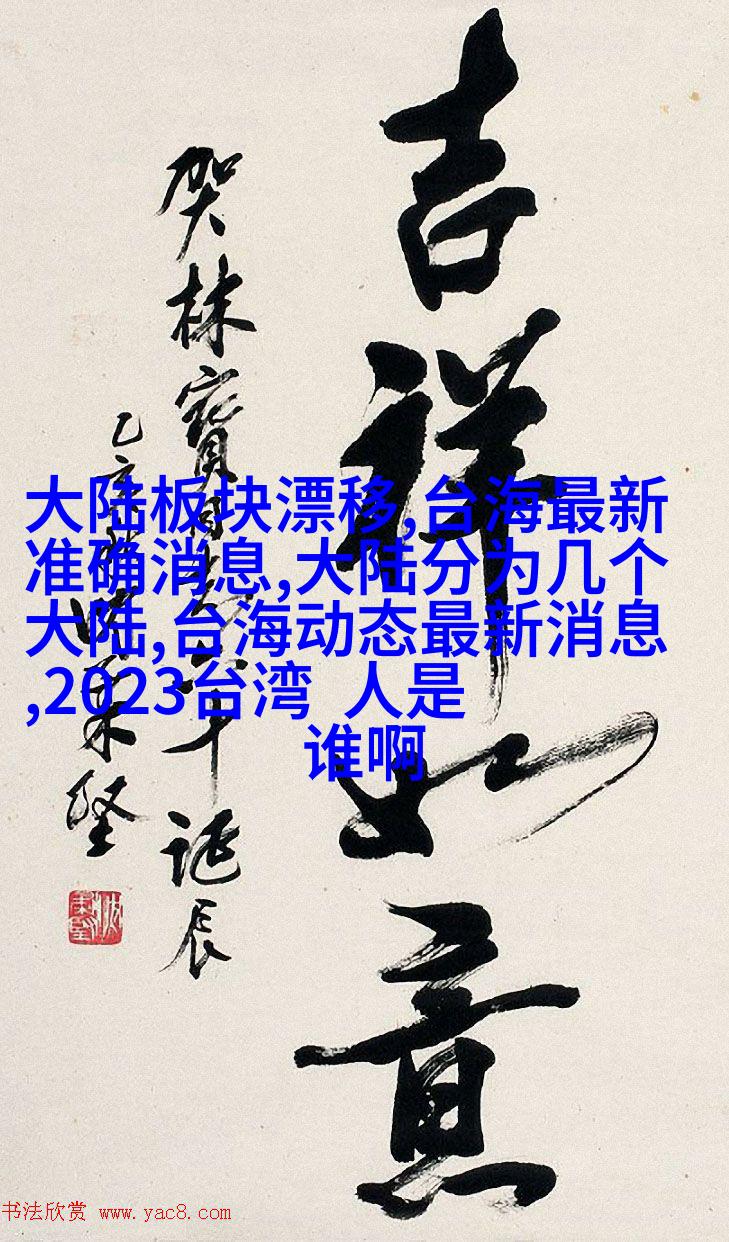 吉祥如意
贺林宝
诞辰
大陆板块漂移,台海最新
准确消息,大陆分为几个
大陆,台海动态最新消息
,2023台湾  人是
谁啊
书法欣赏 www.yac8.com